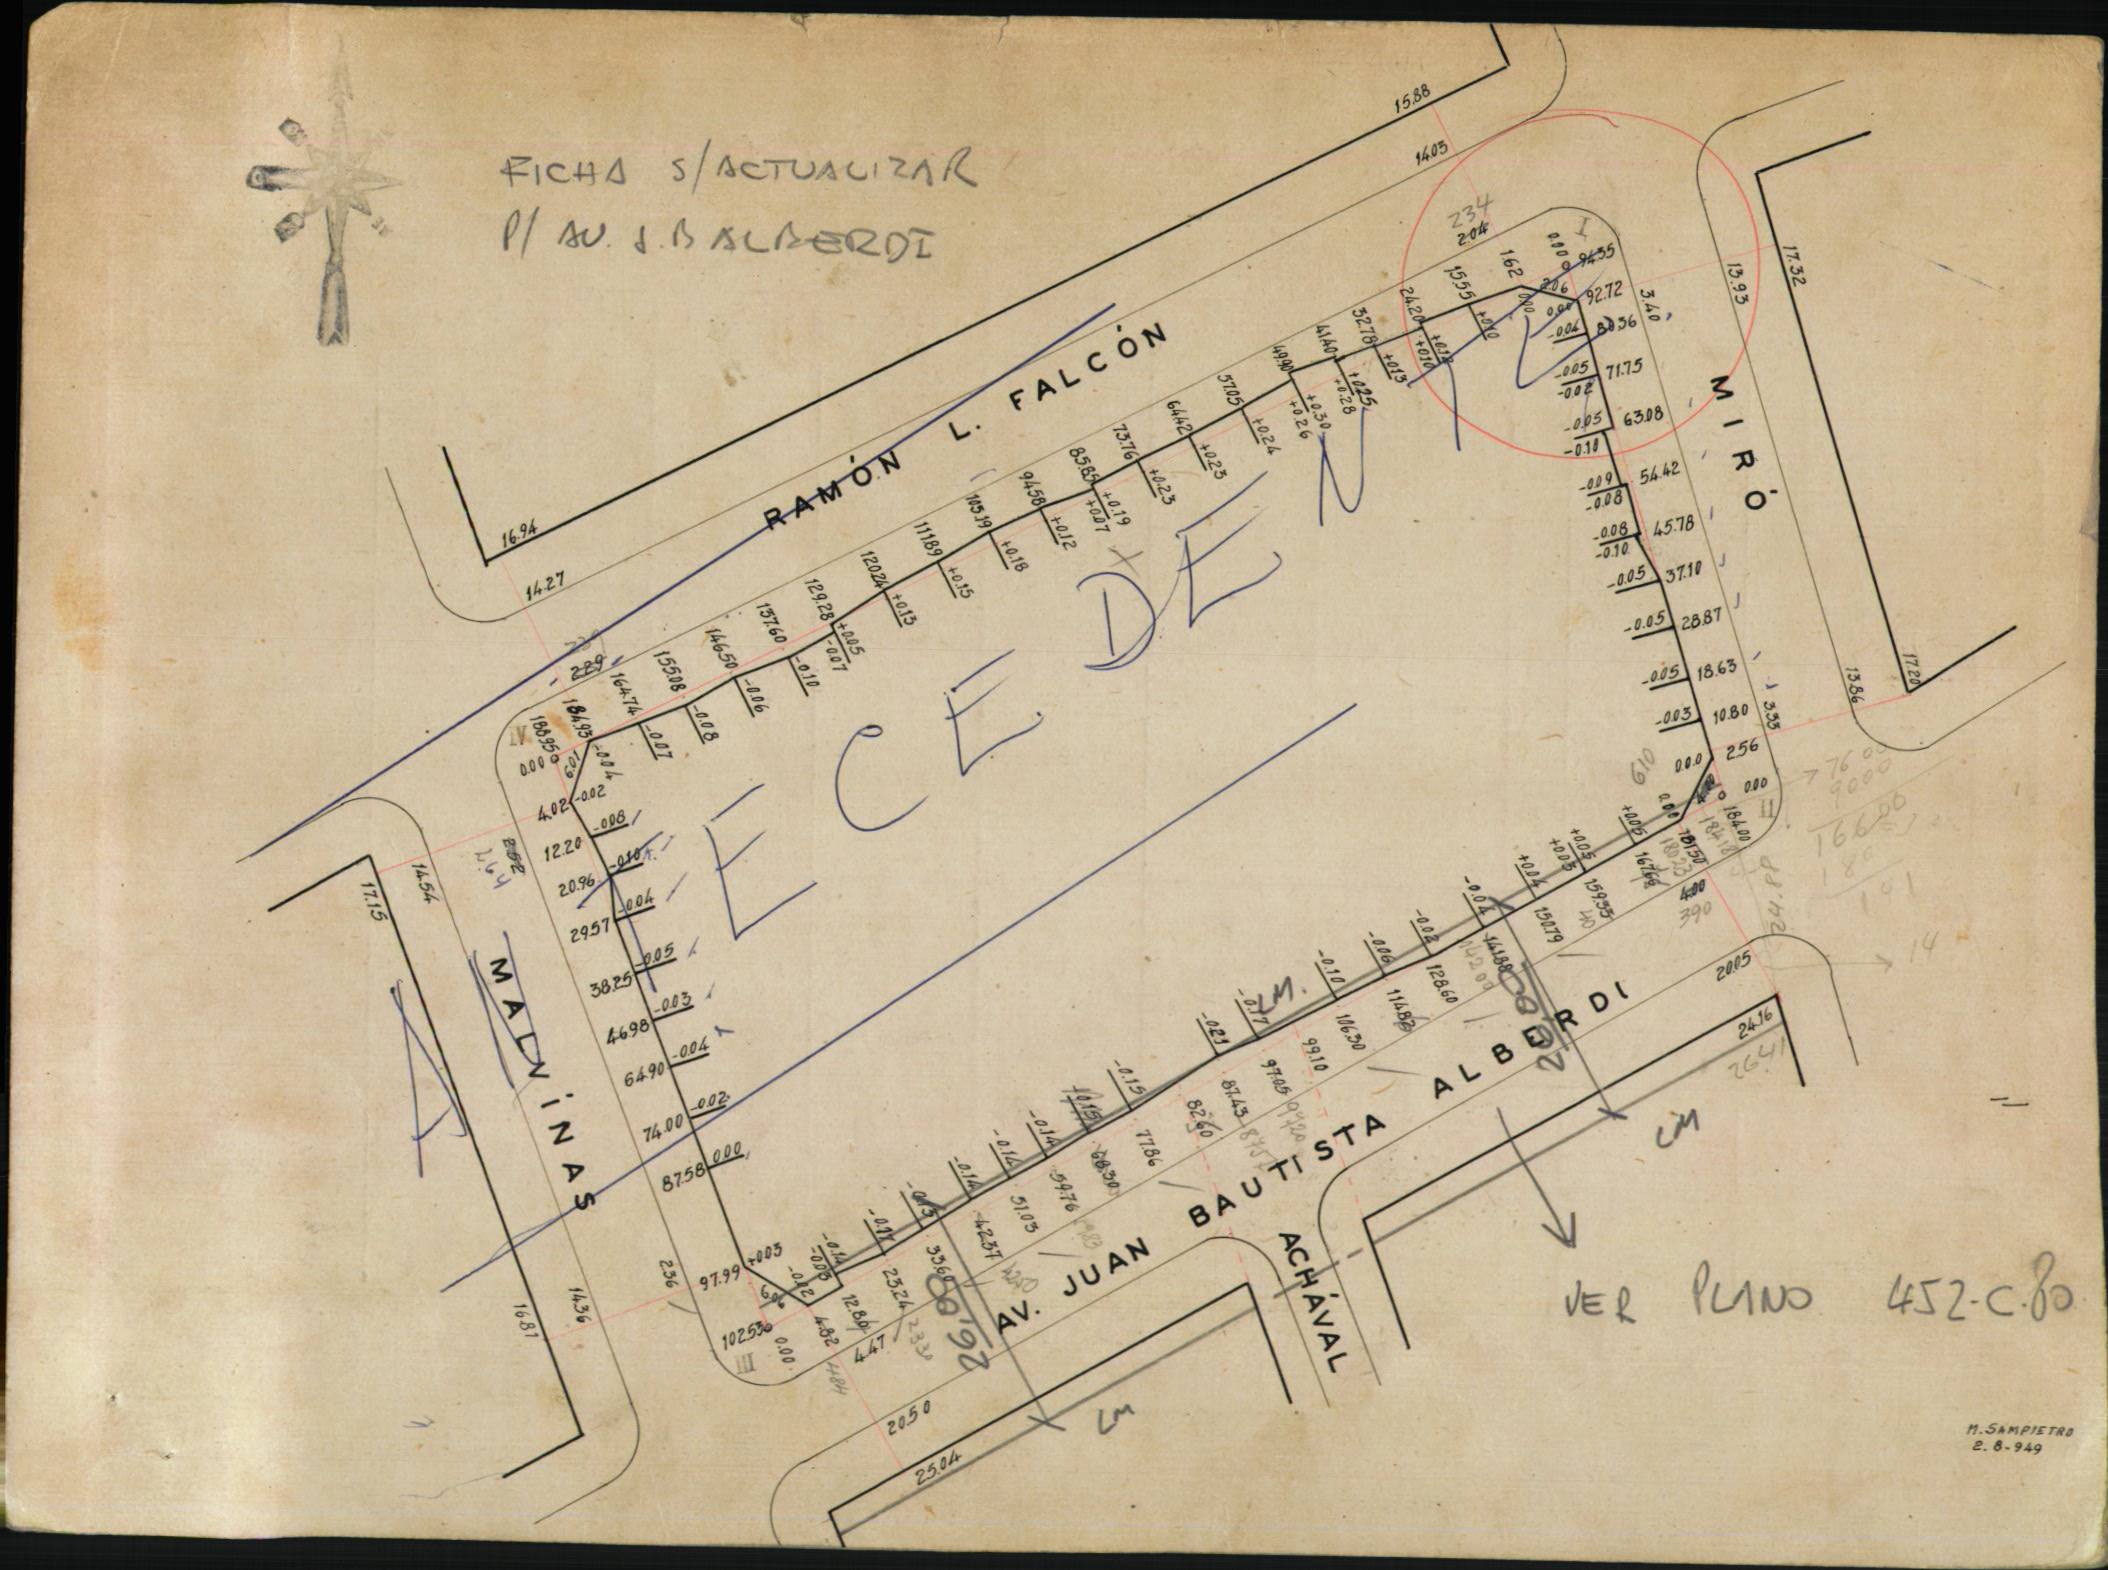 FICHA S/ACTUALIZAR
P/ AV. J. B ALBERDI
15.88
14.03
234
2.04
I
0.00
94.55
17.32
13.93
162
2.06
92.72
3.40
15.55
0.00
+0.10
24.20
+0.12
+0.10
32.78
+0.13
41.40
+0.25
+0.28
49.90
+0.30
+0.26
57.05
+0.24
64.42
+0.23
73.76
+0.23
85.85
+0.19
+0.07
94.58
+0.12
105.19
+0.18
111.89
+0.15
120.24
+0.13
129.28
+0.05
-0.07
137.60
-0.10
146.50
-0.06
155.08
-0.08
164.74
-0.07
184.93
-0.04
RAMÓN L. FALCÓN
16.94
14.27
MIRÓ
-0.04
-0.05
-0.02
71.75
-0.05
-0.10
63.08
-0.09
-0.08
54.42
-0.08
-0.10
45.78
-0.05 37.10
-0.05 28.87
-0.05 18.63
-0.03 10.80
0.00 2.56
3.33
13.86
17.20
610
0.00
0.00
II
184.00
ANTECEDENTE
IV
188.95
0.00
6.01
4.02
-0.02
12.20
-0.08
20.96
-0.10
29.57
-0.04
38.25
-0.05
46.98
-0.03
64.90
-0.04
74.00
-0.02
87.58
0.00
97.99
+0.03
2.52
2.64
14.54
17.15
MALVINAS
2.36
14.36
16.81
102.53
III
0.00
-0.02
4.82
484
4.47
-0.14
-0.03
12.80
-0.17
23.24
2330
-0.13
33.60
-0.14
42.37
-0.14
51.03
-0.14
59.76
0.15
68.30
-0.15
77.86
82.60
-0.21
87.43
-0.17
97.05
9720
99.10
-0.10
106.30
-0.06
114.82
-0.02
128.60
-0.04
141.88
14209
+0.04
150.79
+0.05
+0.03
159.33
+0.05
167.66
181.50
4.00
390
LM.
26.08
26.08
AV. JUAN BAUTISTA ALBERDI
ACHÁVAL
20.05
24.16
26.41
14
LM
LM
20.50
25.04
VER PLANO 452-C.80
M. SAMPIETRO
2.8-949